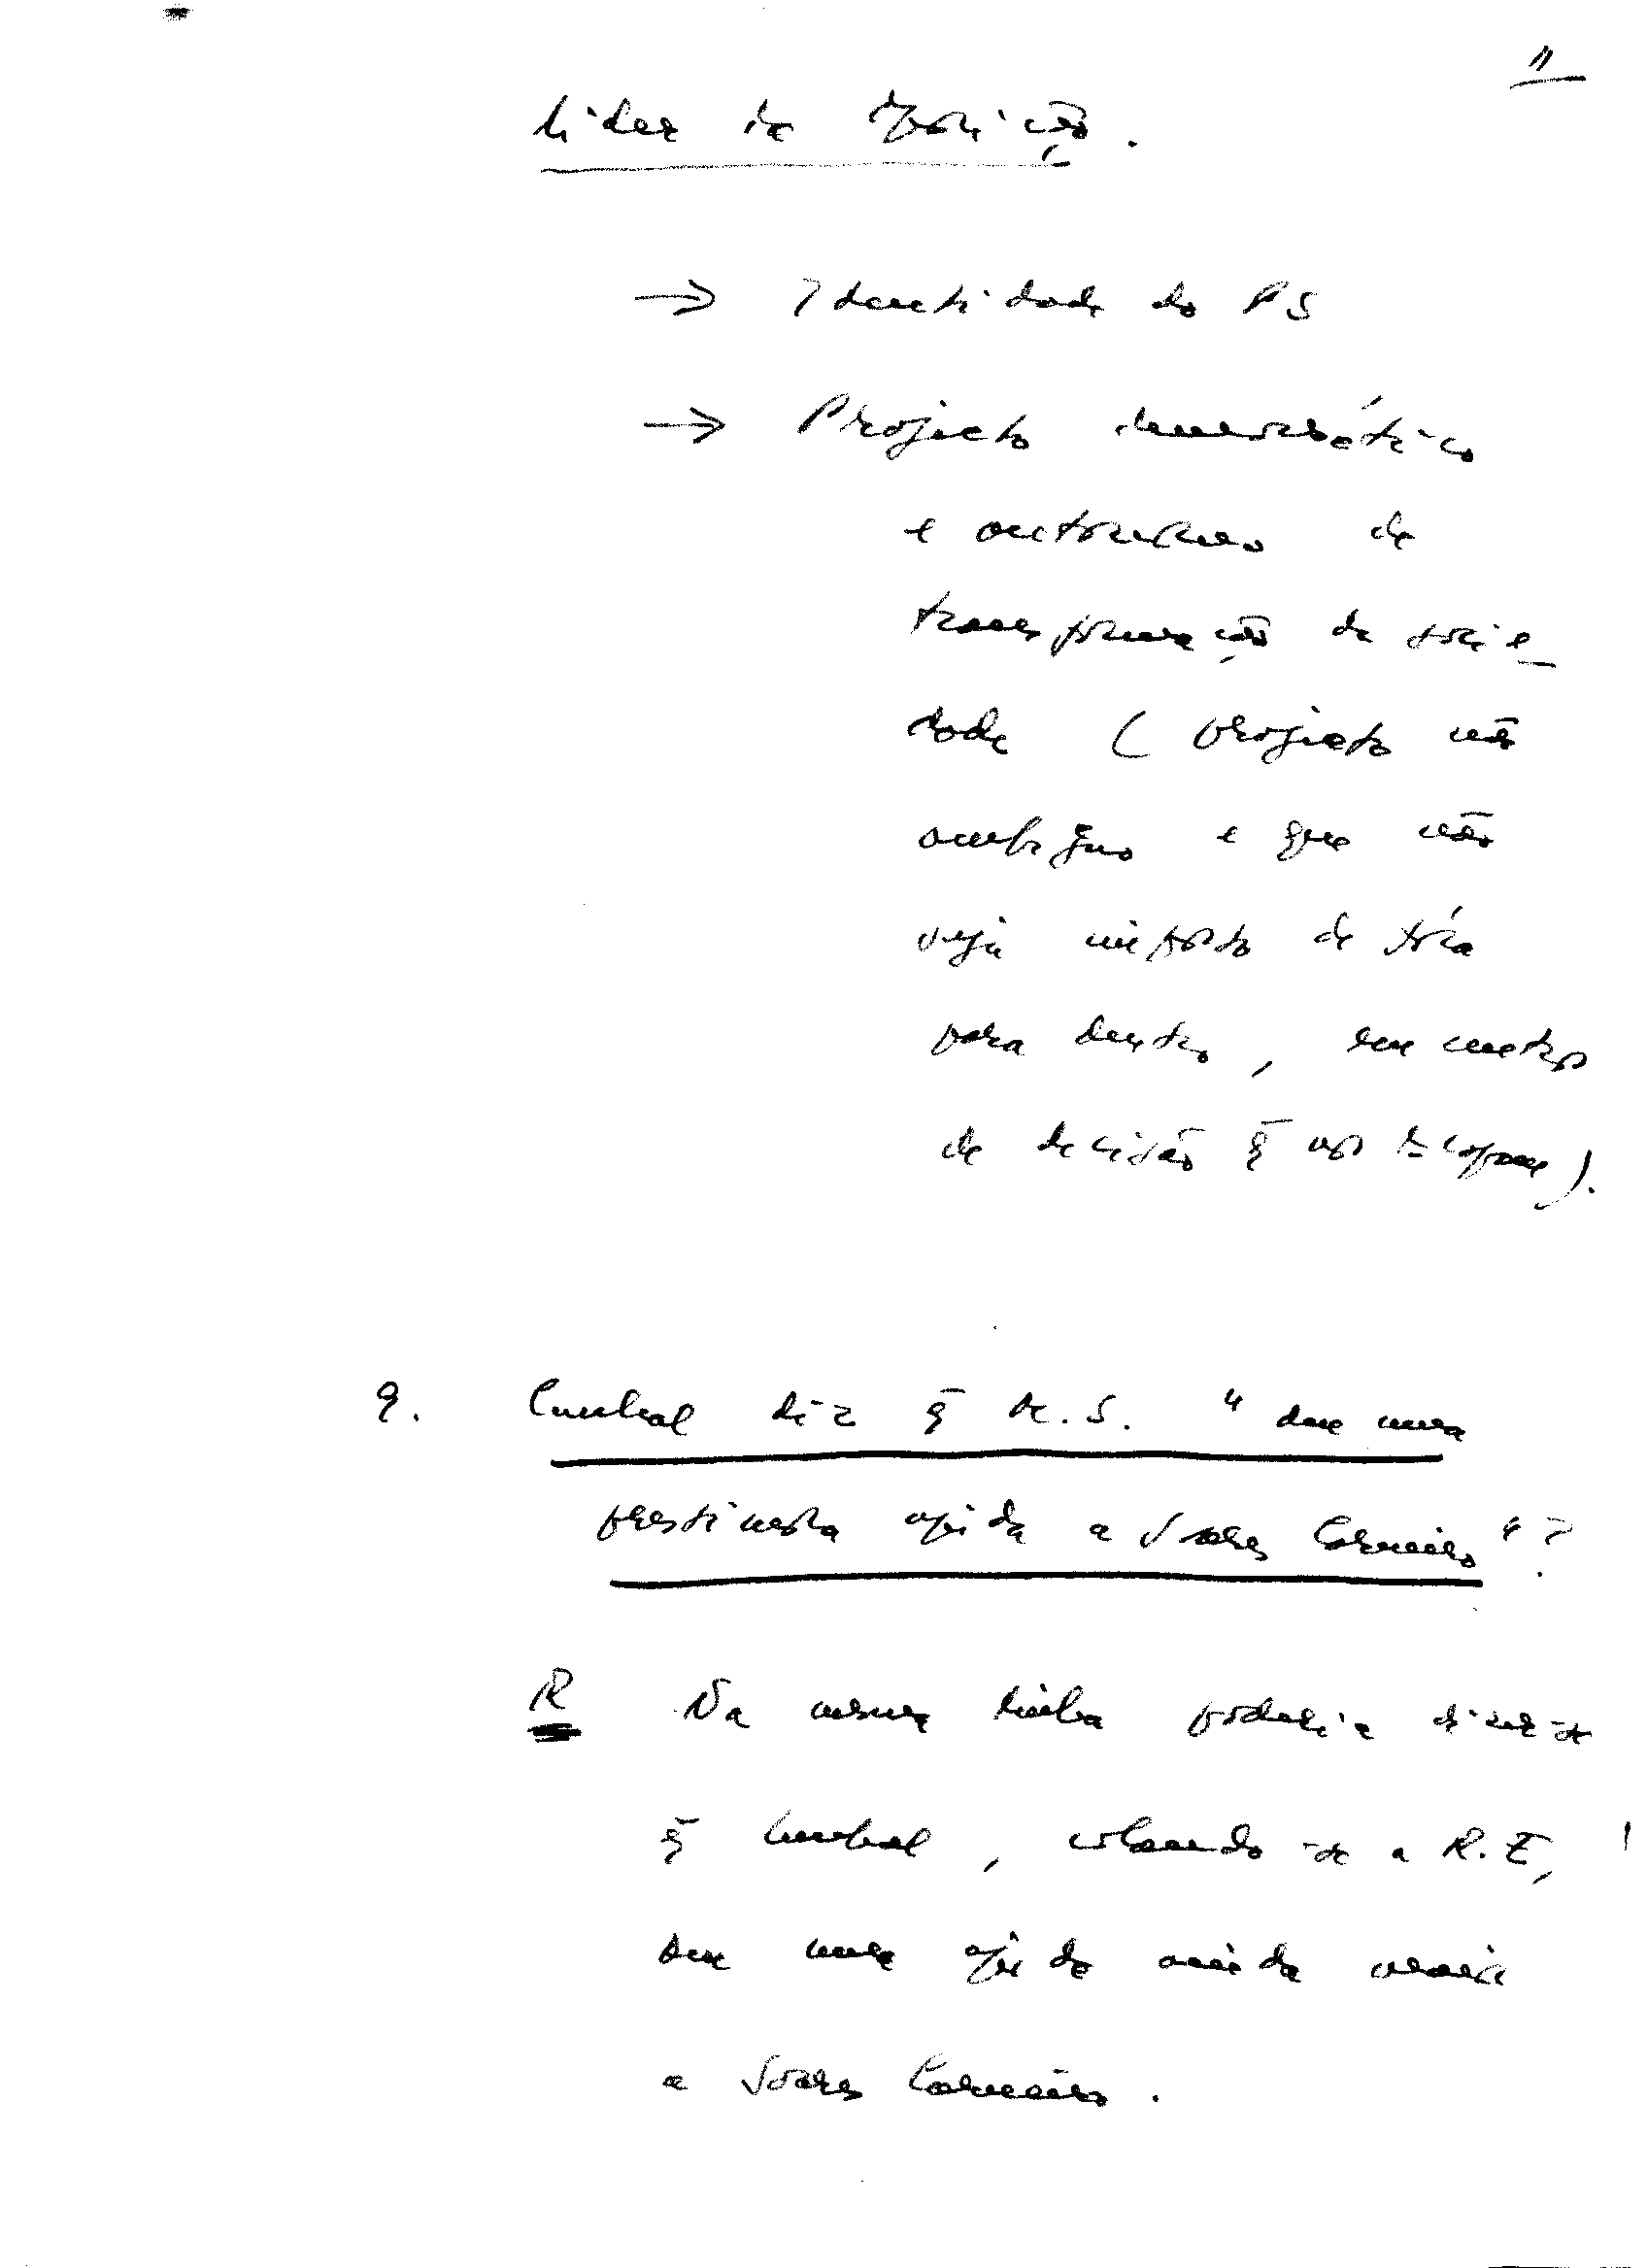 11
líder da oposição.
→ Identidade do PS
→ Projecto democrático
e autónomo de
transformação da socie-
dade (projecto não
ambíguo e que não
seja imposto de fora
para dentro, em centros
de decisão q̃ nos escapam).
9. Cunhal diz q̃ M.S. " deu uma
prestimosa ajuda a Soares Carneiro"?
R Na mesma linha poderia dizer-se
q̃ Cunhal, colando-se a R.E,
deu uma ajuda ainda maior
a Soares Carneiro.